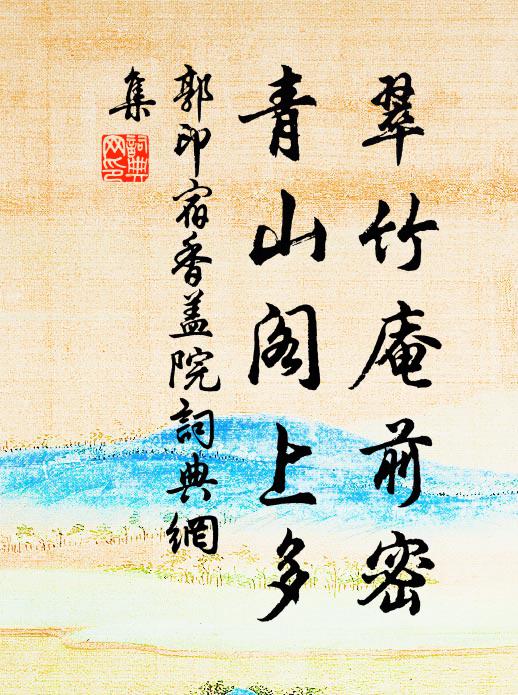 翠竹庵前密
青山阁上多
郭印宿香盖院詞典網
集
詞典网印